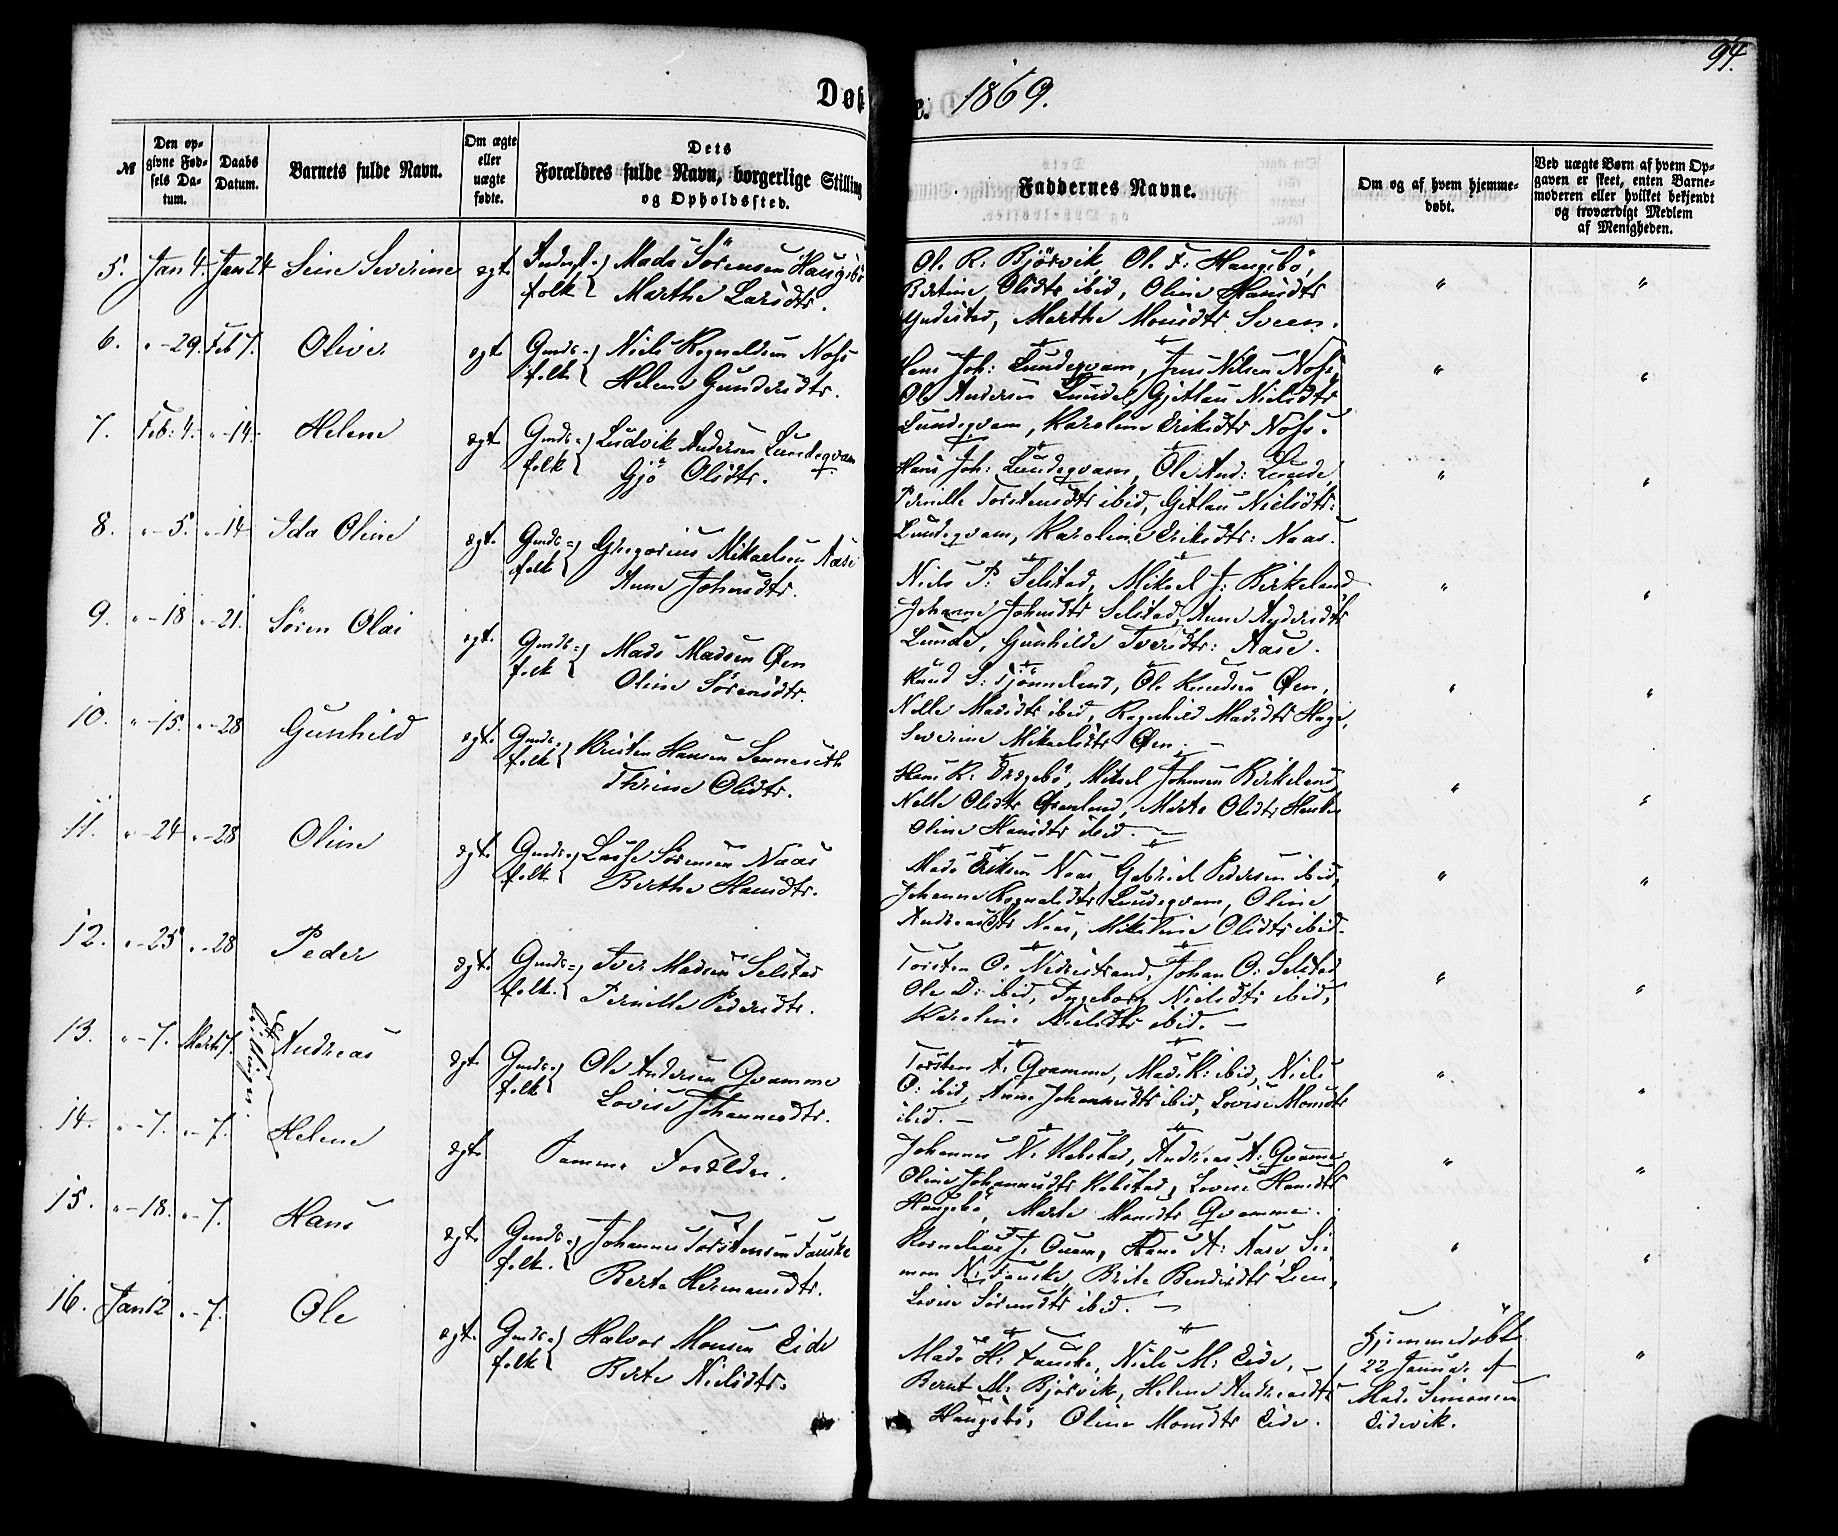 Døb
e. 1869.
94.
№
Den op-
givne Fød-
sels Da-
tum.
Daabs
Datum.
Barnets fulde Navn.
Om ægte
eller
uægte
fødte.
Dets
Forældres fulde Navn, borgerlige Stilling
og Opholdssted.
Faddernes Navne.
Om og af hvem hjemme-
døbt.
Ved uægte Børn af hvem Op-
gaven er skeet, enten Barne-
moderen eller hvilket bekjendt
og troværdigt Medlem
af Menigheden.
5. Jan 4. Jan 24 Sine Severine ægt. Mads Sörensen Haugsbö
folk Marthe Larsdtr.
Ol. R. Bjørvik, Ol. F: Haugsbö,
Bertine Olsdtr ibid, Oline Hansdtr
Marthe Monsdtr Sveen.
6. " - 29. Feb 7. Oliver ægt. Gmds= Niels Rognaldsen Nofs
folk Helene Gundersdtr.
Hans Joh: Lundeqvam, Jens Nilsen Nofs,
Ol Andersen Lunde, Gjetlau Nielsdtr
Lundeqvam, Karoline Eriksdtr Nofs.
7. Feb: 4. " - 14. Helene ægt Gmds= Ludvik Andersen Lundeqvam
folk Gjö Olsdtr.
Hans Joh: Lundeqvam, Ole And: Lunde,
Pernille Torstensdtr ibid, Gitlau Nielsdtr:
Lundeqvam, Karoline Eriksdtr: Naas.
8. " - 5. " - 14 Ida Oline ægt. Gmds= Gregorius Mikaelsen Aase
folk Anne Johnsdtr.
Niels P: Selstad, Mikael J: Birkeland
Johanne Johnsdtr Selstad, Anne Andersdtr
Lunde, Gunhilde Iversdtr: Aase.
9. " - 18 " - 21. Sören Olai ægt. Gmds= Mads Madsen Øen
folk Oline Sörensdtr.
Knud S: Tjönneland, Ole Knudsen Øen,
Nille Madsdtr ibid, Ragnhild Madsdtr Hage,
Severine Mikaelsdtr Øen. -
10. " - 15. " - 28 Gunhild ægt. Gmds= Kristen Hansen Senneseth
folk Thrine Olsdtr.
Hans K: Birkeland,
Nille Olsdtr Marte Olsdtr
Oline Hansdtr ibid. -
11. " - 24 " - 28 Oline ægt. Gmds= Lasse Sörensen Naas
folk Berthe Hansdtr.
Mads Eriksen Naas, Gabriel Pedersen ibid,
Johanne Rognaldsdtr Lundeqvam, Oline
Andreasdtr Naas, Mikeline Olsdtr ibid.
12. " - 25 " - 28 Peder ægt. Gmds= Iver Madsen Selstad
folk. Pernille Pedersdtr.
Torsten O: Nedrestrand, Johan O: Selstad
Ole D: ibid, Ingeborg Nielsdtr ibid,
Karoline Nielsdtr ibid. -
13. " - 7. Marts 7. Tvillinger. Andreas ægt. Gmds= Ole Andersen Qvamme
folk Lovise Johannesdtr.
Torsten A: Qvamme, Mads K: ibid, Niels
O: ibid, Anne Johannesdtr ibid, Lovise Monsdtr
ibid. -
14. " - 7. " - 7. Helene ægt. Samme Forældre.
Johannes N: Andreas A: Qvamme
Oline Johannesdtr Lovise Hansdtr
Haugsbö, Marte Monsdtr Qvamme.
15. " - 18. " - 7. Hans ægt. Gmds= Johannes Torstensen Fauske
folk. Berte Hermansdtr.
Kornelius J: Hans A: Aase, Si-
mon N: Fauske, Brite Bendixdtr Lien,
Lovise Sörensdtr ibid. -
16. Jan 12 " - 7. Ole ægt. Gmds= Halvor Monsen Eide
folk Berte Nielsdtr.
Mads H: Fauske, Niels M: Eide, -
Bernt M: Bjørvik, Helene Andreasdtr
Haugsbö, Oline Monsdtr Eide.
Hjemmedøbt
22 Januar af
Mads Simonsen
Eidevik.